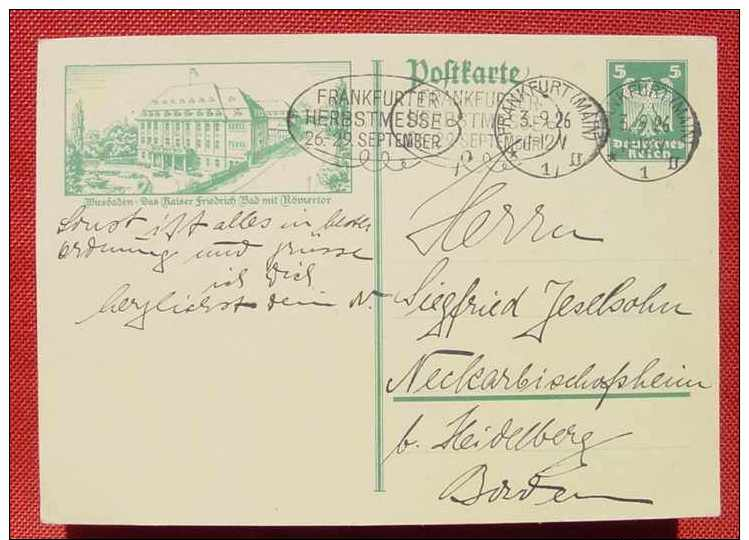 Postkarte
FRANKFURTER
HERBSTMESSE
26.-29. SEPTEMBER
FRANKFURT (MAIN)
3.-9.26
1
FRANKFURT (MAIN)
3.-9.26
1
5 5
Deutsches
Reich
Wiesbaden · Das Kaiser Friedrich Bad mit Römertor
Sonst ist alles in bester
Ordnung und grüsse
ich Dich
herzlichst dein
Herrn
Siegfried Jeselsohn
Neckarbischofsheim
b. Heidelberg
Baden